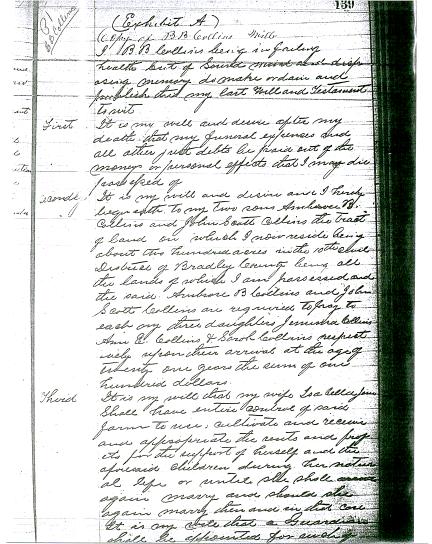 159
B B Collins
(Exhibit A)
Copy of B B Collins Will
I B B Collins being in feeble
health but of sound mind and disp
osing memory do make ordain and
publish this my last Will and Testament
to wit
First It is my will and desire after my
death that my funeral expenses and
all other just debts be paid out of the
money or personal effects that I may die
possessed of
It is my will and desire and I hereby
bequeath to my two sons Ambrose B.
Collins and John Scott Collins the tract
of land on which I now reside being
about two hundred acres in the 10th civil
District of Bradley County being all
the lands of which I am possessed and
the said Ambrose B Collins and John
Scott Collins are required to pay to
each my three daughters Jemima Collins
Ann E. Collins & Sarah Collins respect
ively upon their arrival at the age of
twenty one years the sum of one
hundred dollars
Third It is my will that my wife Isabella Jane
Shall have entire control of said
farm to use, cultivate and receive
and appropriate the rents and prof
its for the support of herself and the
aforesaid children during her natur
al life or until she shall
again marry and should she
again marry then and in that case
It is my will that a Guardian
shall be appointed for